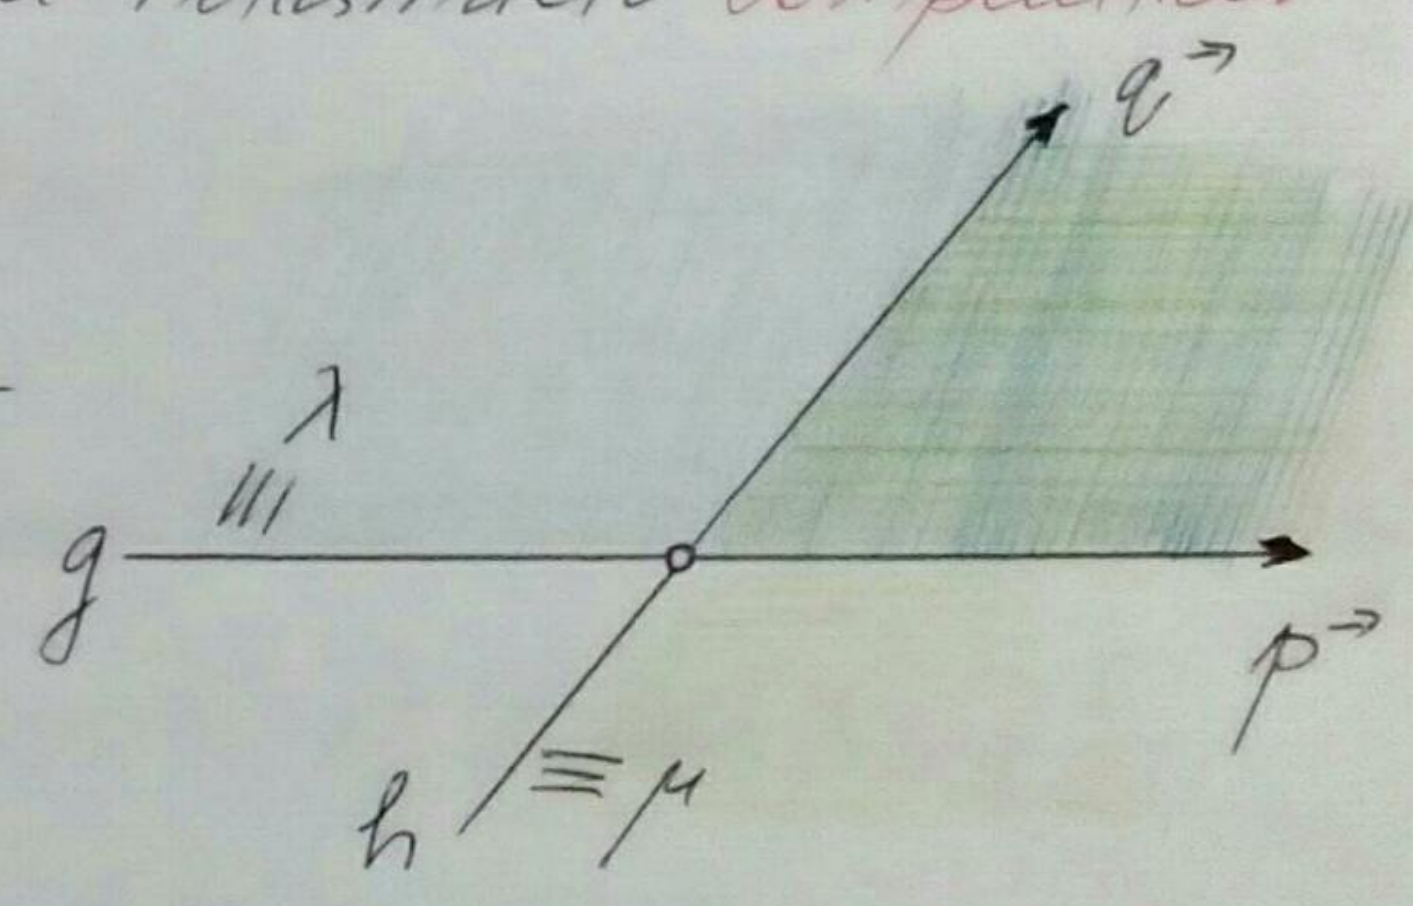 q→
λ
g
p→
h
μ